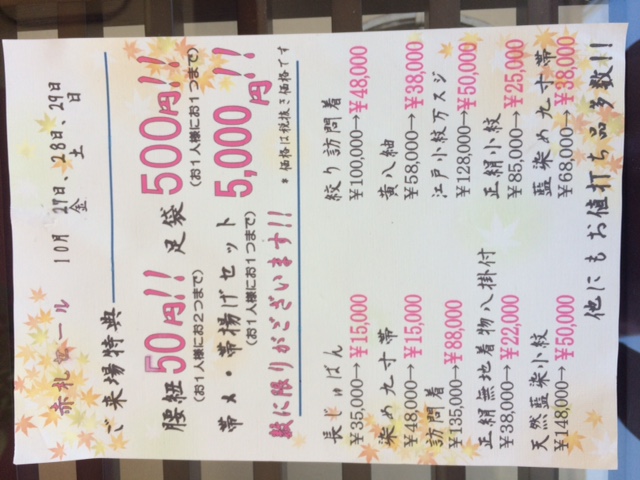 赤札セール 10月 27日、28日、29日
金 土 日
ご来場特典
腰紐 50円!! 足袋 500円!!
(お1人様にお2つまで) (お1人様にお1つまで)
帯〆・帯揚げセット 5,000円!!
(お1人様にお1つまで)
数に限りがございます!! *価格は税抜き価格です
長じゅばん
¥35,000→¥15,000
染め九寸帯
¥48,000→¥15,000
訪問着
¥135,000→¥88,000
正絹無地着物八掛付
¥38,000→¥22,000
天然藍染小紋
¥148,000→¥50,000
絞り訪問着
¥100,000→¥48,000
黄八紬
¥58,000→¥38,000
江戸小紋万スジ
¥128,000→¥50,000
正絹小紋
¥85,000→¥25,000
藍染め九寸帯
¥68,000→¥38,000
他にもお値打ち品多数!!